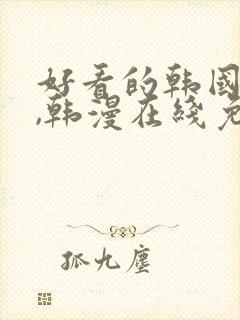 好看的韩国
,韩漫在线免
孤九尘